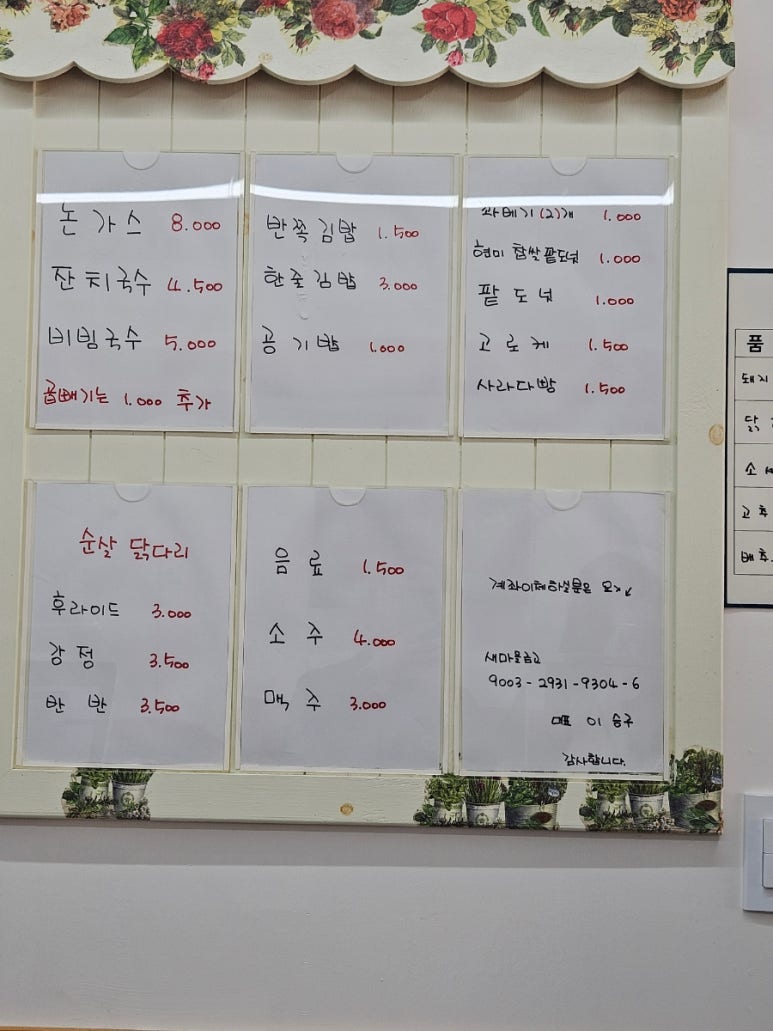 돈가스 8.000
잔치국수 4.500
비빔국수 5.000
곱빼기는 1.000 추가
반쪽김밥 1.500
한줄김밥 3.000
공기밥 1.000
꽈베기(2)개 1.000
현미 찹쌀팥도넛 1.000
팥도넛 1.000
고로케 1.500
사라다빵 1.500
순살 닭다리
후라이드 3.000
강정 3.500
반반 3.500
음료 1.500
소주 4.000
맥주 3.000
계좌이체하실분은
새마을금고
9003-2931-9304-6
이승구
감사합니다.
품
돼지
닭
소세
고추
배추